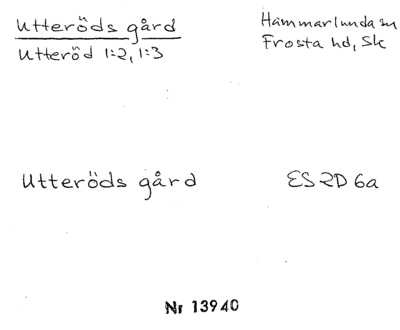 Utteröds gård
Hammarlunda sn
Utteröd 1:2, 1:3
Frosta hd, Sk
Utteröds gård
ES 2D 6a
Nr 13940